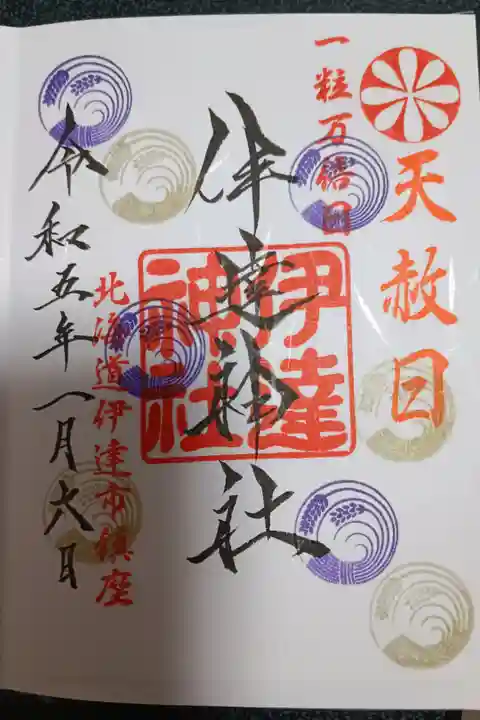 天赦日
一粒万倍日
伊達神社
伊達神社
北海道伊達市鎮座
令和五年一月六日